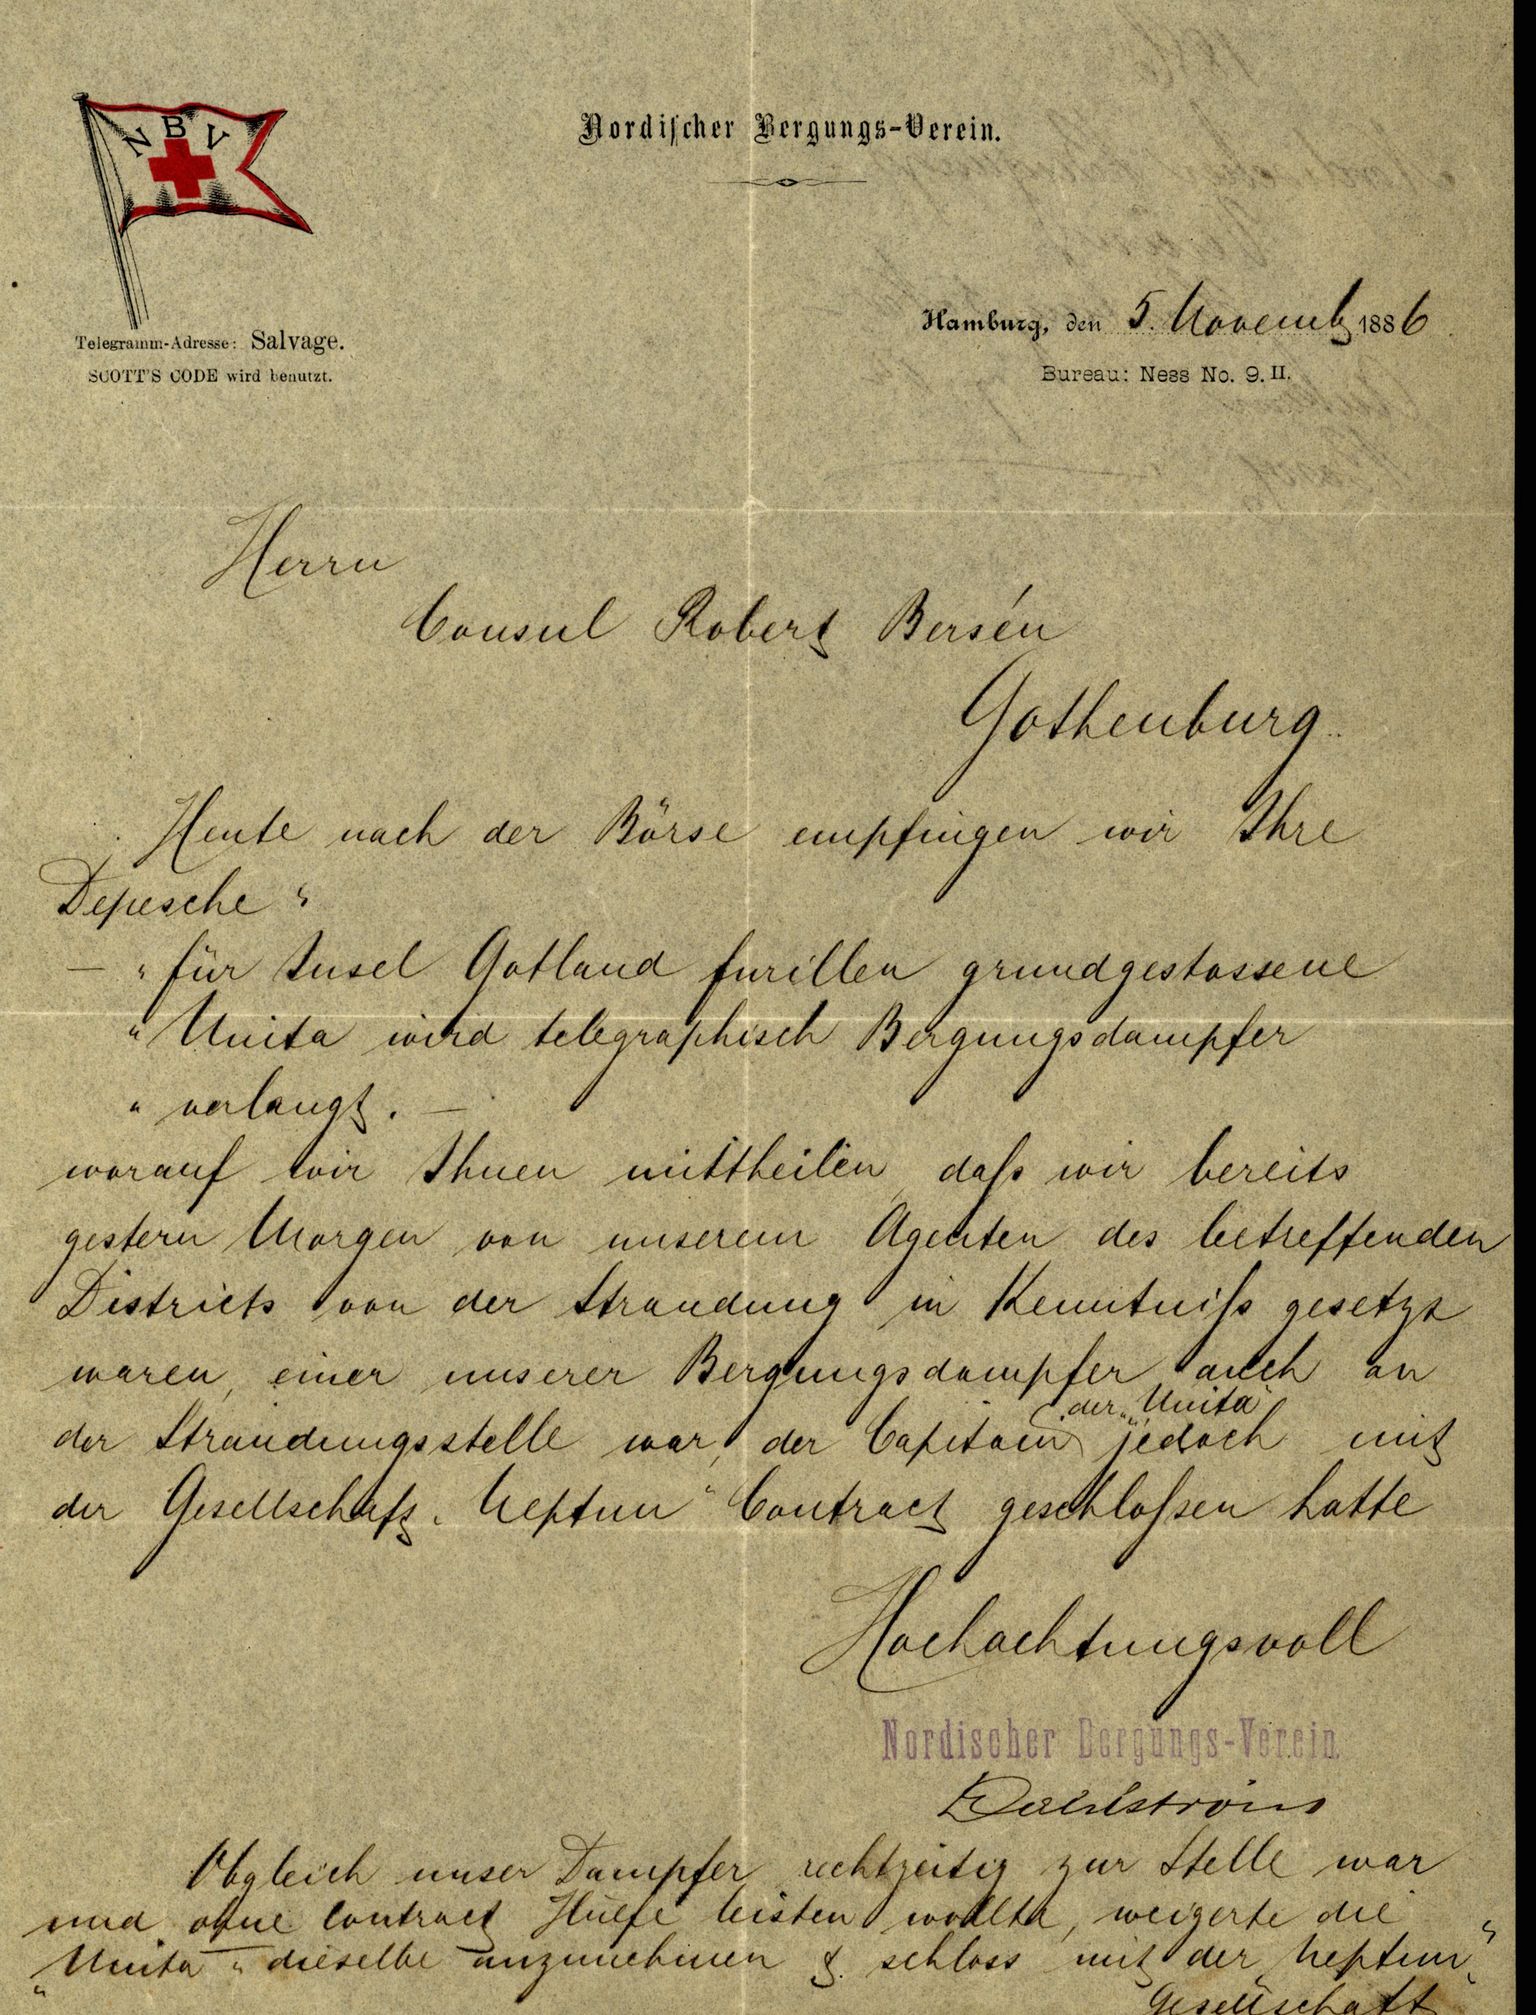 N B V
Nordischer Bergungs-Verein.
Telegramm-Adresse: Salvage.
SCOTT'S CODE wird benutzt.
Hamburg, den 5. Novemb 1886
Bureau: Ness No. 9. II.
Herrn
Consul Robert Bersén
Gothenburg
Heute nach der Börse empfingen wir Ihre
Depesche "
— "für Insel Gotland furillen grundgestossene
"Unita wird telegraphisch Bergungsdampfer
"verlangt. —
worauf wir Ihnen mittheilen, daß wir bereits
gestern Morgen von unserem Agenten des betreffenden
Districts von der Strandung in Kenntniß gesetzt
waren, einer unserer Bergungsdampfer auch an
der "Unita"
der Strandungsstelle war, der Capitain jedoch mit
der Gesellschaft "Neptun" Contract geschloßen hatte
Hochachtungsvoll
Nordischer Bergungs-Verein.
Dahlström
Obgleich unser Dampfer rechtzeitig zur Stelle war
und ohne Contract Hülfe leisten wollte, weigerte die
"Unita" dieselbe anzunehmen & schloss mit der "Neptun"
Gesellschaft